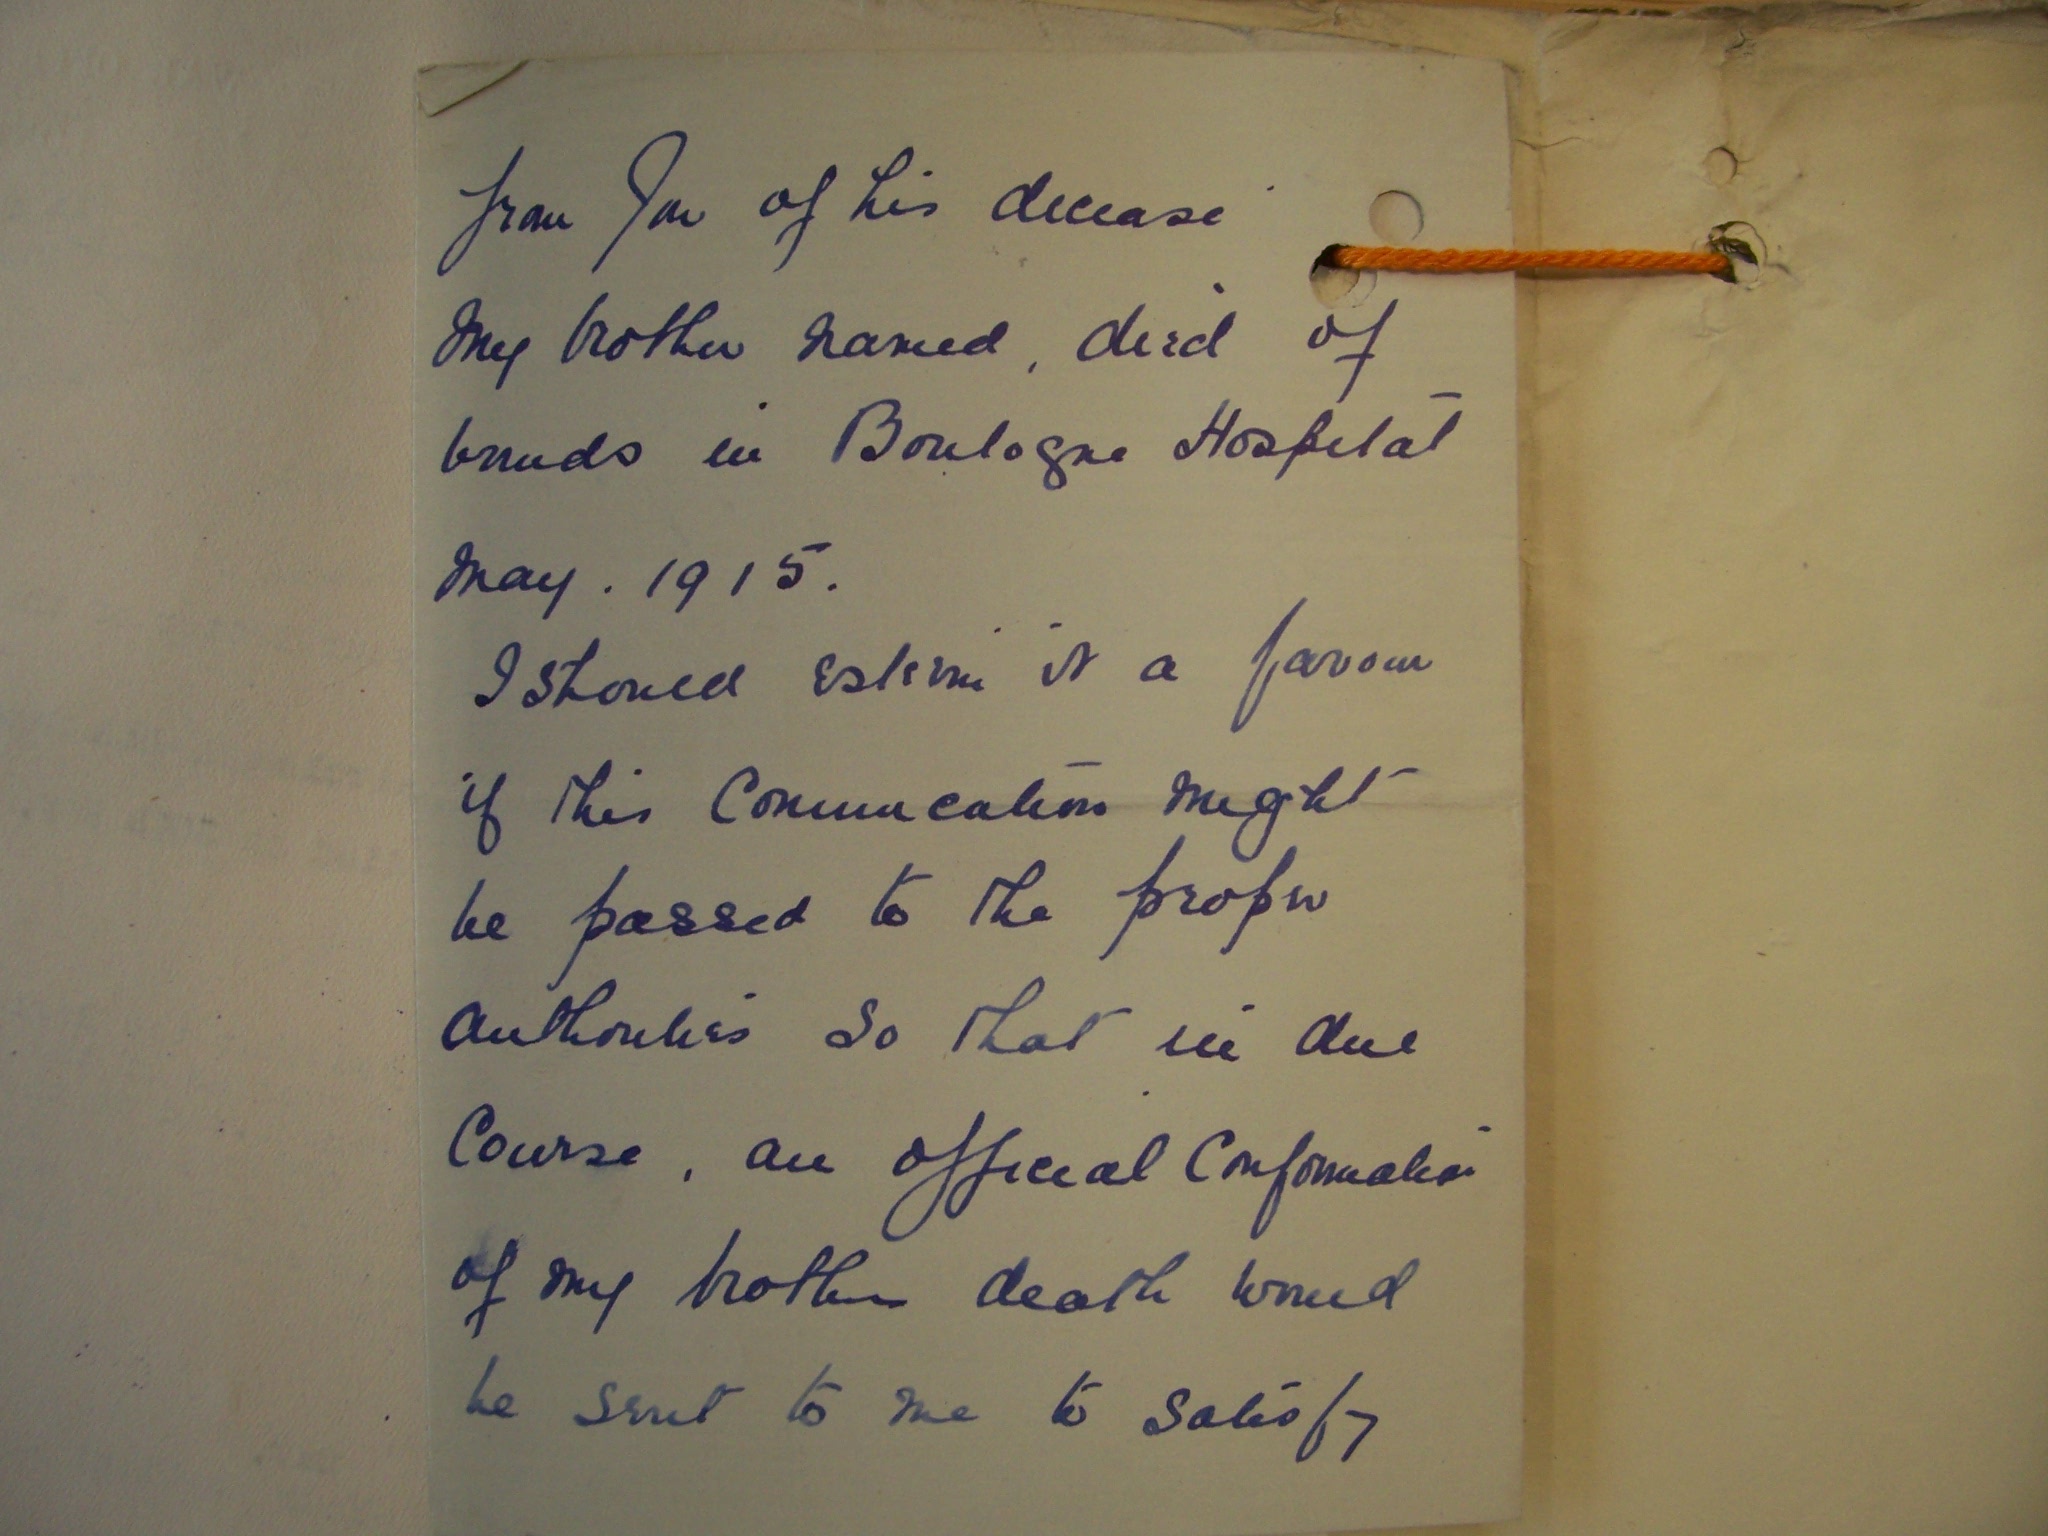 from you of his decease
My brother named, died of
wounds in Boulogne Hospital
May. 1915.
I should esteem it a favour
if this Communication might
be passed to the proper
Authorities so that in due
Course, an official Confirmation
of my brothers death would
be sent to me to satisfy